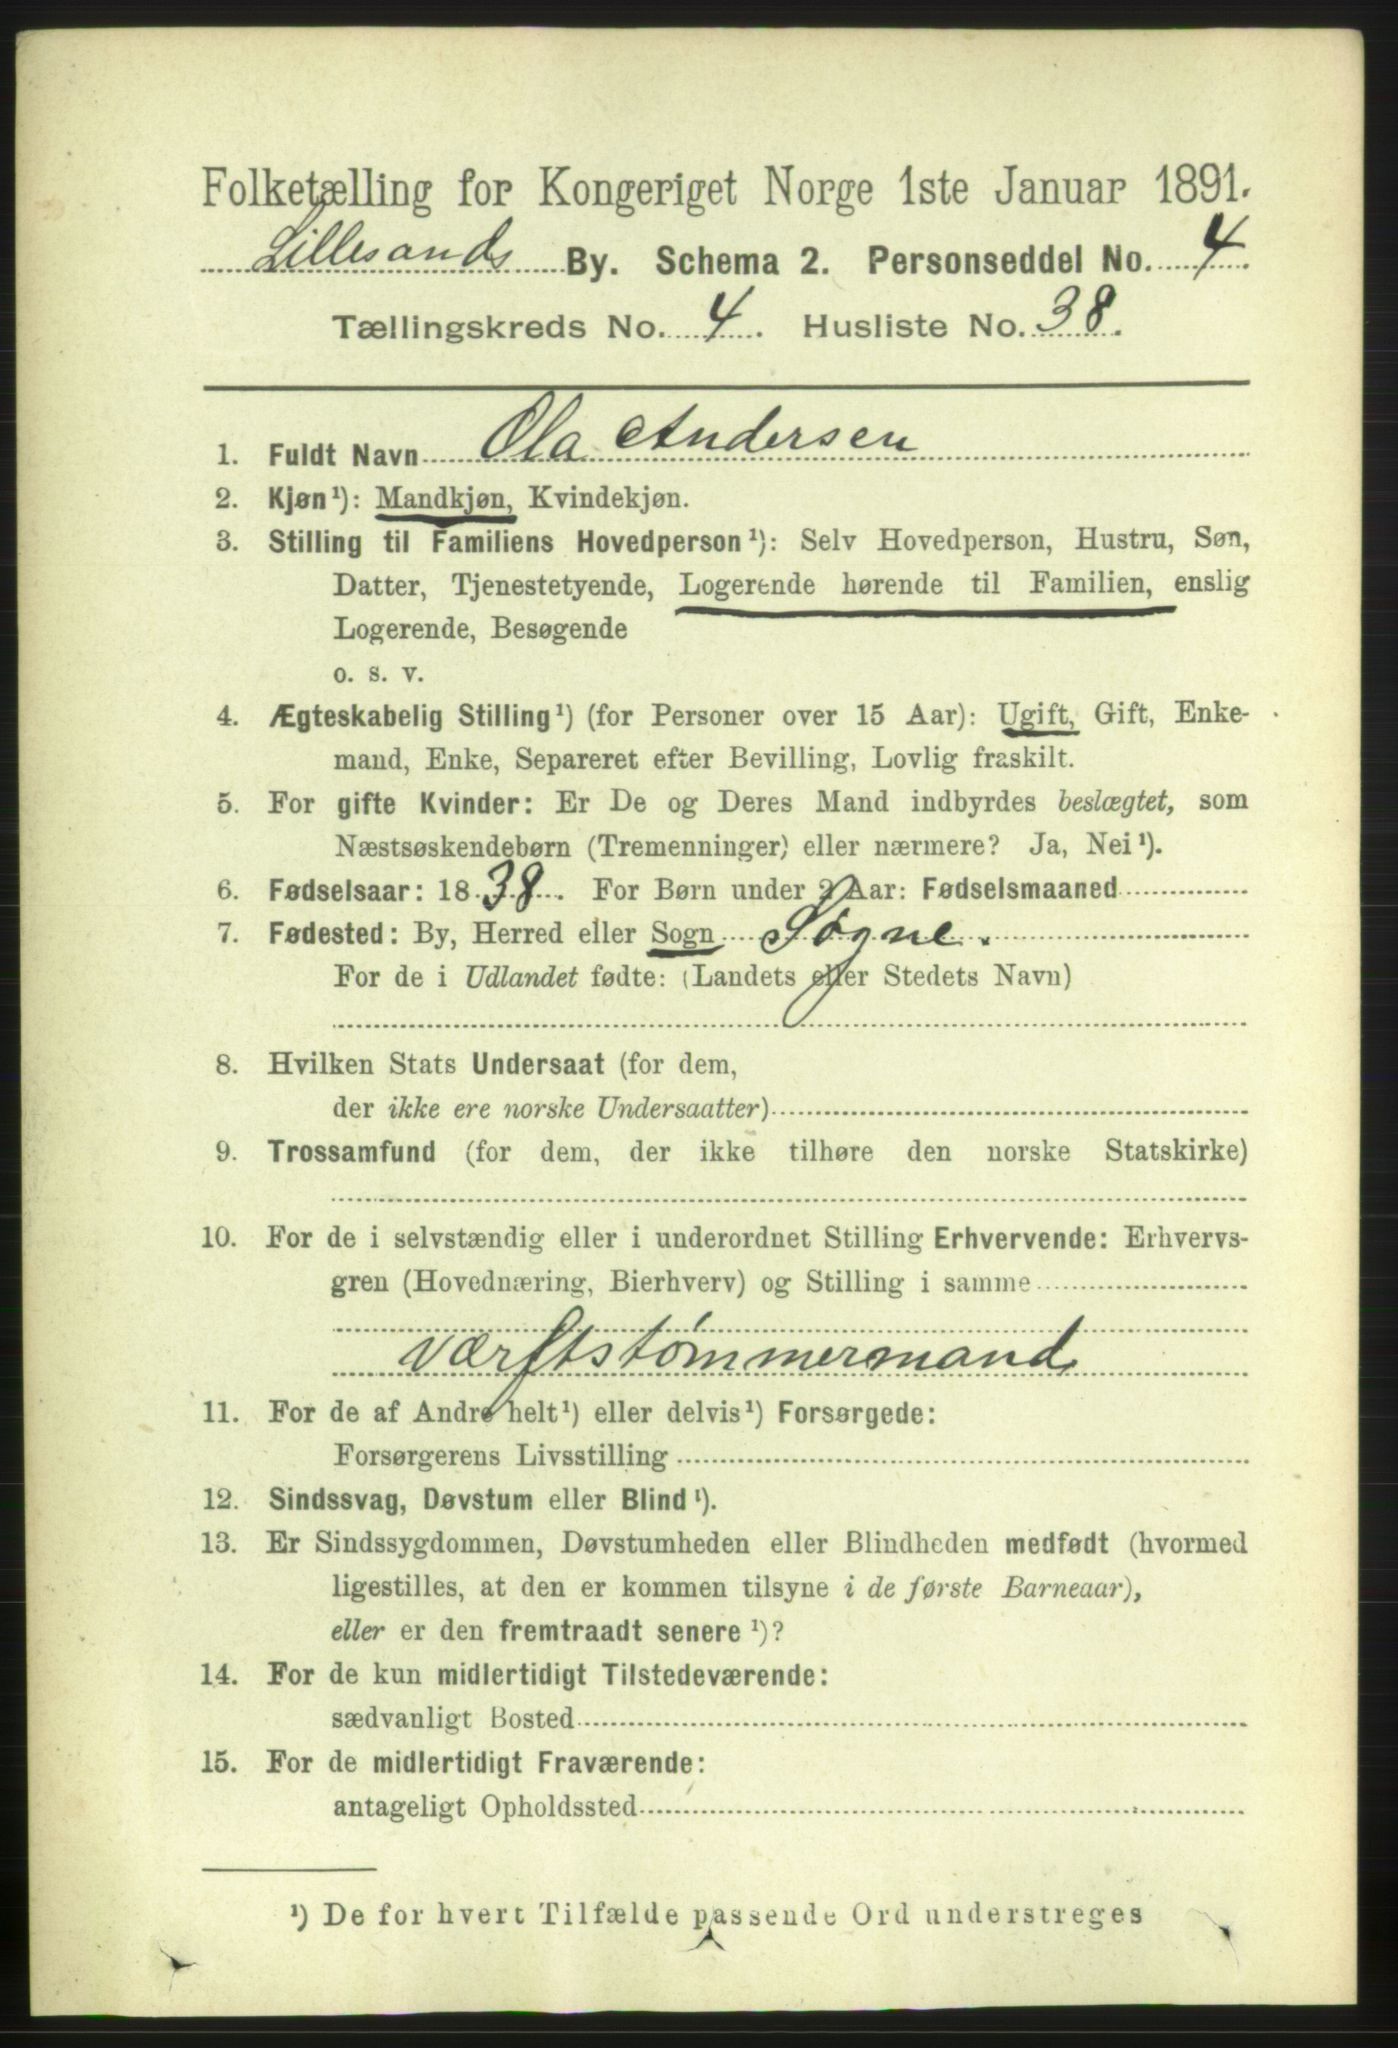 Folketælling for Kongeriget Norge 1ste Januar 1891.
Lillesands By. Schema 2. Personseddel No. 4.
Tællingskreds No. 4. Husliste No. 38.
1. Fuldt Navn Ola Andersen
2. Kjøn¹): Mandkjøn, Kvindekjøn.
3. Stilling til Familiens Hovedperson¹): Selv Hovedperson, Hustru, Søn,
Datter, Tjenestetyende, Logerende hørende til Familien, enslig
Logerende, Besøgende
o. s. v.
4. Ægteskabelig Stilling¹) (for Personer over 15 Aar): Ugift, Gift, Enke-
mand, Enke, Separeret efter Bevilling, Lovlig fraskilt.
5. For gifte Kvinder: Er De og Deres Mand indbyrdes beslægtet, som
Næstsøskendebørn (Tremenninger) eller nærmere? Ja, Nei¹).
6. Fødselsaar: 1838. For Børn under 2 Aar: Fødselsmaaned
7. Fødested: By, Herred eller Sogn Søgne.
For de i Udlandet fødte: (Landets eller Stedets Navn)
8. Hvilken Stats Undersaat (for dem,
der ikke ere norske Undersaatter)
9. Trossamfund (for dem, der ikke tilhøre den norske Statskirke)
10. For de i selvstændig eller i underordnet Stilling Erhvervende: Erhvervs-
gren (Hovednæring, Bierhverv) og Stilling i samme
Værftstømmermand
11. For de af Andre helt¹) eller delvis¹) Forsørgede:
Forsørgerens Livsstilling
12. Sindssvag, Døvstum eller Blind¹).
13. Er Sindssygdommen, Døvstumheden eller Blindheden medfødt (hvormed
ligestilles, at den er kommen tilsyne i de første Barneaar),
eller er den fremtraadt senere¹)?
14. For de kun midlertidigt Tilstedeværende:
sædvanligt Bosted
15. For de midlertidigt Fraværende:
antageligt Opholdssted
¹) De for hvert Tilfælde passende Ord understreges